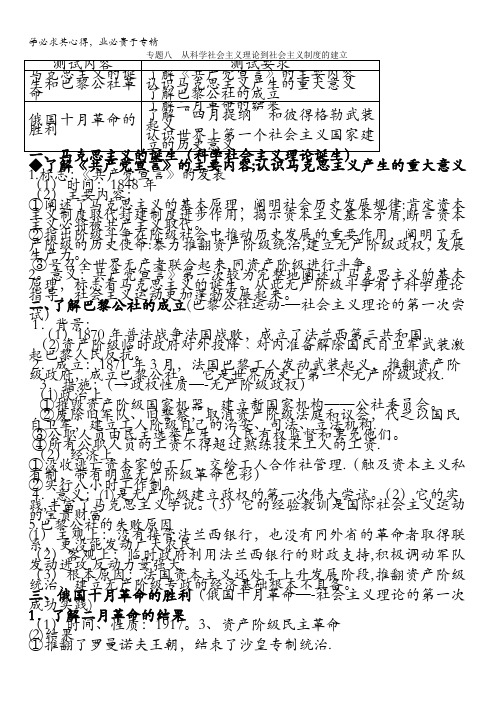 学必求其心得，业必贵于专精
专题八　从科学社会主义理论到社会主义制度的建立
测试内容　测试要求
马克思主义的诞生和巴黎公社革命
了解《共产党宣言》的主要内容
认识马克思主义产生的重大意义
了解巴黎公社的成立
俄国十月革命的胜利
了解二月革命的结果
了解“四月提纲”和彼得格勒武装起义
认识世界上第一个社会主义国家建立的历史意义
一、马克思主义的诞生（科学社会主义理论诞生）
◆了解《共产党宣言》的主要内容;认识马克思主义产生的重大意义
1标志：《共产党宣言》的发表
（1）时间：1848 年
（2）主要内容：
①阐述了马克思主义的基本原理，阐明社会历史发展规律:肯定资本
主义制度取代封建制度进步作用；揭示资本主义基本矛盾,断言资本
主义必将被共产主义取代。
②指出阶级斗争在阶级社会中推动历史发展的重要作用，阐明了无
产阶级的历史使命:暴力推翻资产阶级统治,建立无产阶级政权,发展
生产力。
③号召全世界无产者联合起来,同资产阶级进行斗争。
2。意义：《共产党宣言》第一次较为完整地阐述了马克思主义的基本
原理，标志着马克思主义的诞生。从此无产阶级斗争有了科学理论
指导，社会主义运动更加蓬勃发展起来。
二、了解巴黎公社的成立(巴黎公社运动-—社会主义理论的第一次尝
试）
1．背景：
（1）1870 年普法战争法国战败，成立了法兰西第三共和国。
(2)资产阶级临时政府对外投降，对内准备解除国民自卫军武装激
起巴黎人民反抗。
2．成立：1871 年 3 月，法国巴黎工人发动武装起义，推翻资产阶
级政府，成立巴黎公社，它是世界历史上第一个无产阶级政权.
3．措施：（→政权性质—-无产阶级政权）
(1)政治上
①摧毁资产阶级国家机器，建立新国家机构——公社委员会。
②废除旧军队、旧警察，取消资产阶级法庭和议会，代之以国民
自卫军，建立工人阶级自己的治安、司法、立法机构.
③公职人员由民主选举产生，人民有权监督和罢免他们。
④所有公职人员的工资不得超过熟练技术工人的工资.
（2）经济上
①没收逃亡资本家的工厂，交给工人合作社管理.（触及资本主义私
有制，带有明显无产阶级革命色彩）
②实行八小时工作制。
4．意义：(1)是无产阶级建立政权的第一次伟大尝试。(2）它的实
践,丰富了马克思主义学说。（3）它的经验教训是国际社会主义运动
的宝贵财富。
5.巴黎公社的失败原因
（1）主观上：没有接管法兰西银行，也没有同外省的革命者取得联
系，更没能发动广大农民。
（2）客观上：临时政府利用法兰西银行的财政支持,积极调动军队
发动进攻反动力量强大
（3）根本原因：法国资本主义还处于上升发展阶段,推翻资产阶级
统治，建立无产阶级专政的经济基础根本不具备。
三、俄国十月革命的胜利（俄国十月革命—社会主义理论的第一次
成功实践）
1．了解二月革命的结果
（1）时间、性质：1917。3、资产阶级民主革命
(2)结果
①推翻了罗曼诺夫王朝，结束了沙皇专制统治.